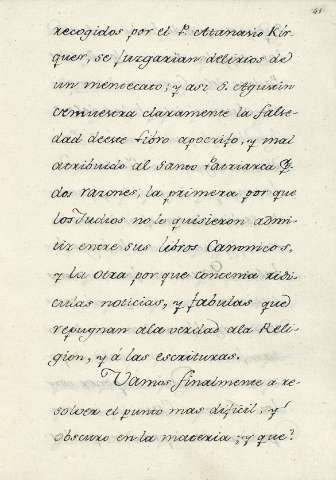 41
recogidos por el P. Atanasio Kir-
quer, se juzgarian delirios de
un mentecato; y asi S. Agustin
demuestra claramente la false-
dad deeste libro apocrifo, y mal
atribuido al santo Patriarca p.
dos razones, la primera por que
los Judios no le quisieron admi-
tir entre sus libros Canonicos,
y la otra por que contenia ridi-
culas noticias, y fabulas que
repugnan ala verdad ala Reli-
gion, y á las escrituras.
Vamos finalmente a re-
solver el punto mas dificil, y
obscuro en la materia; y que?